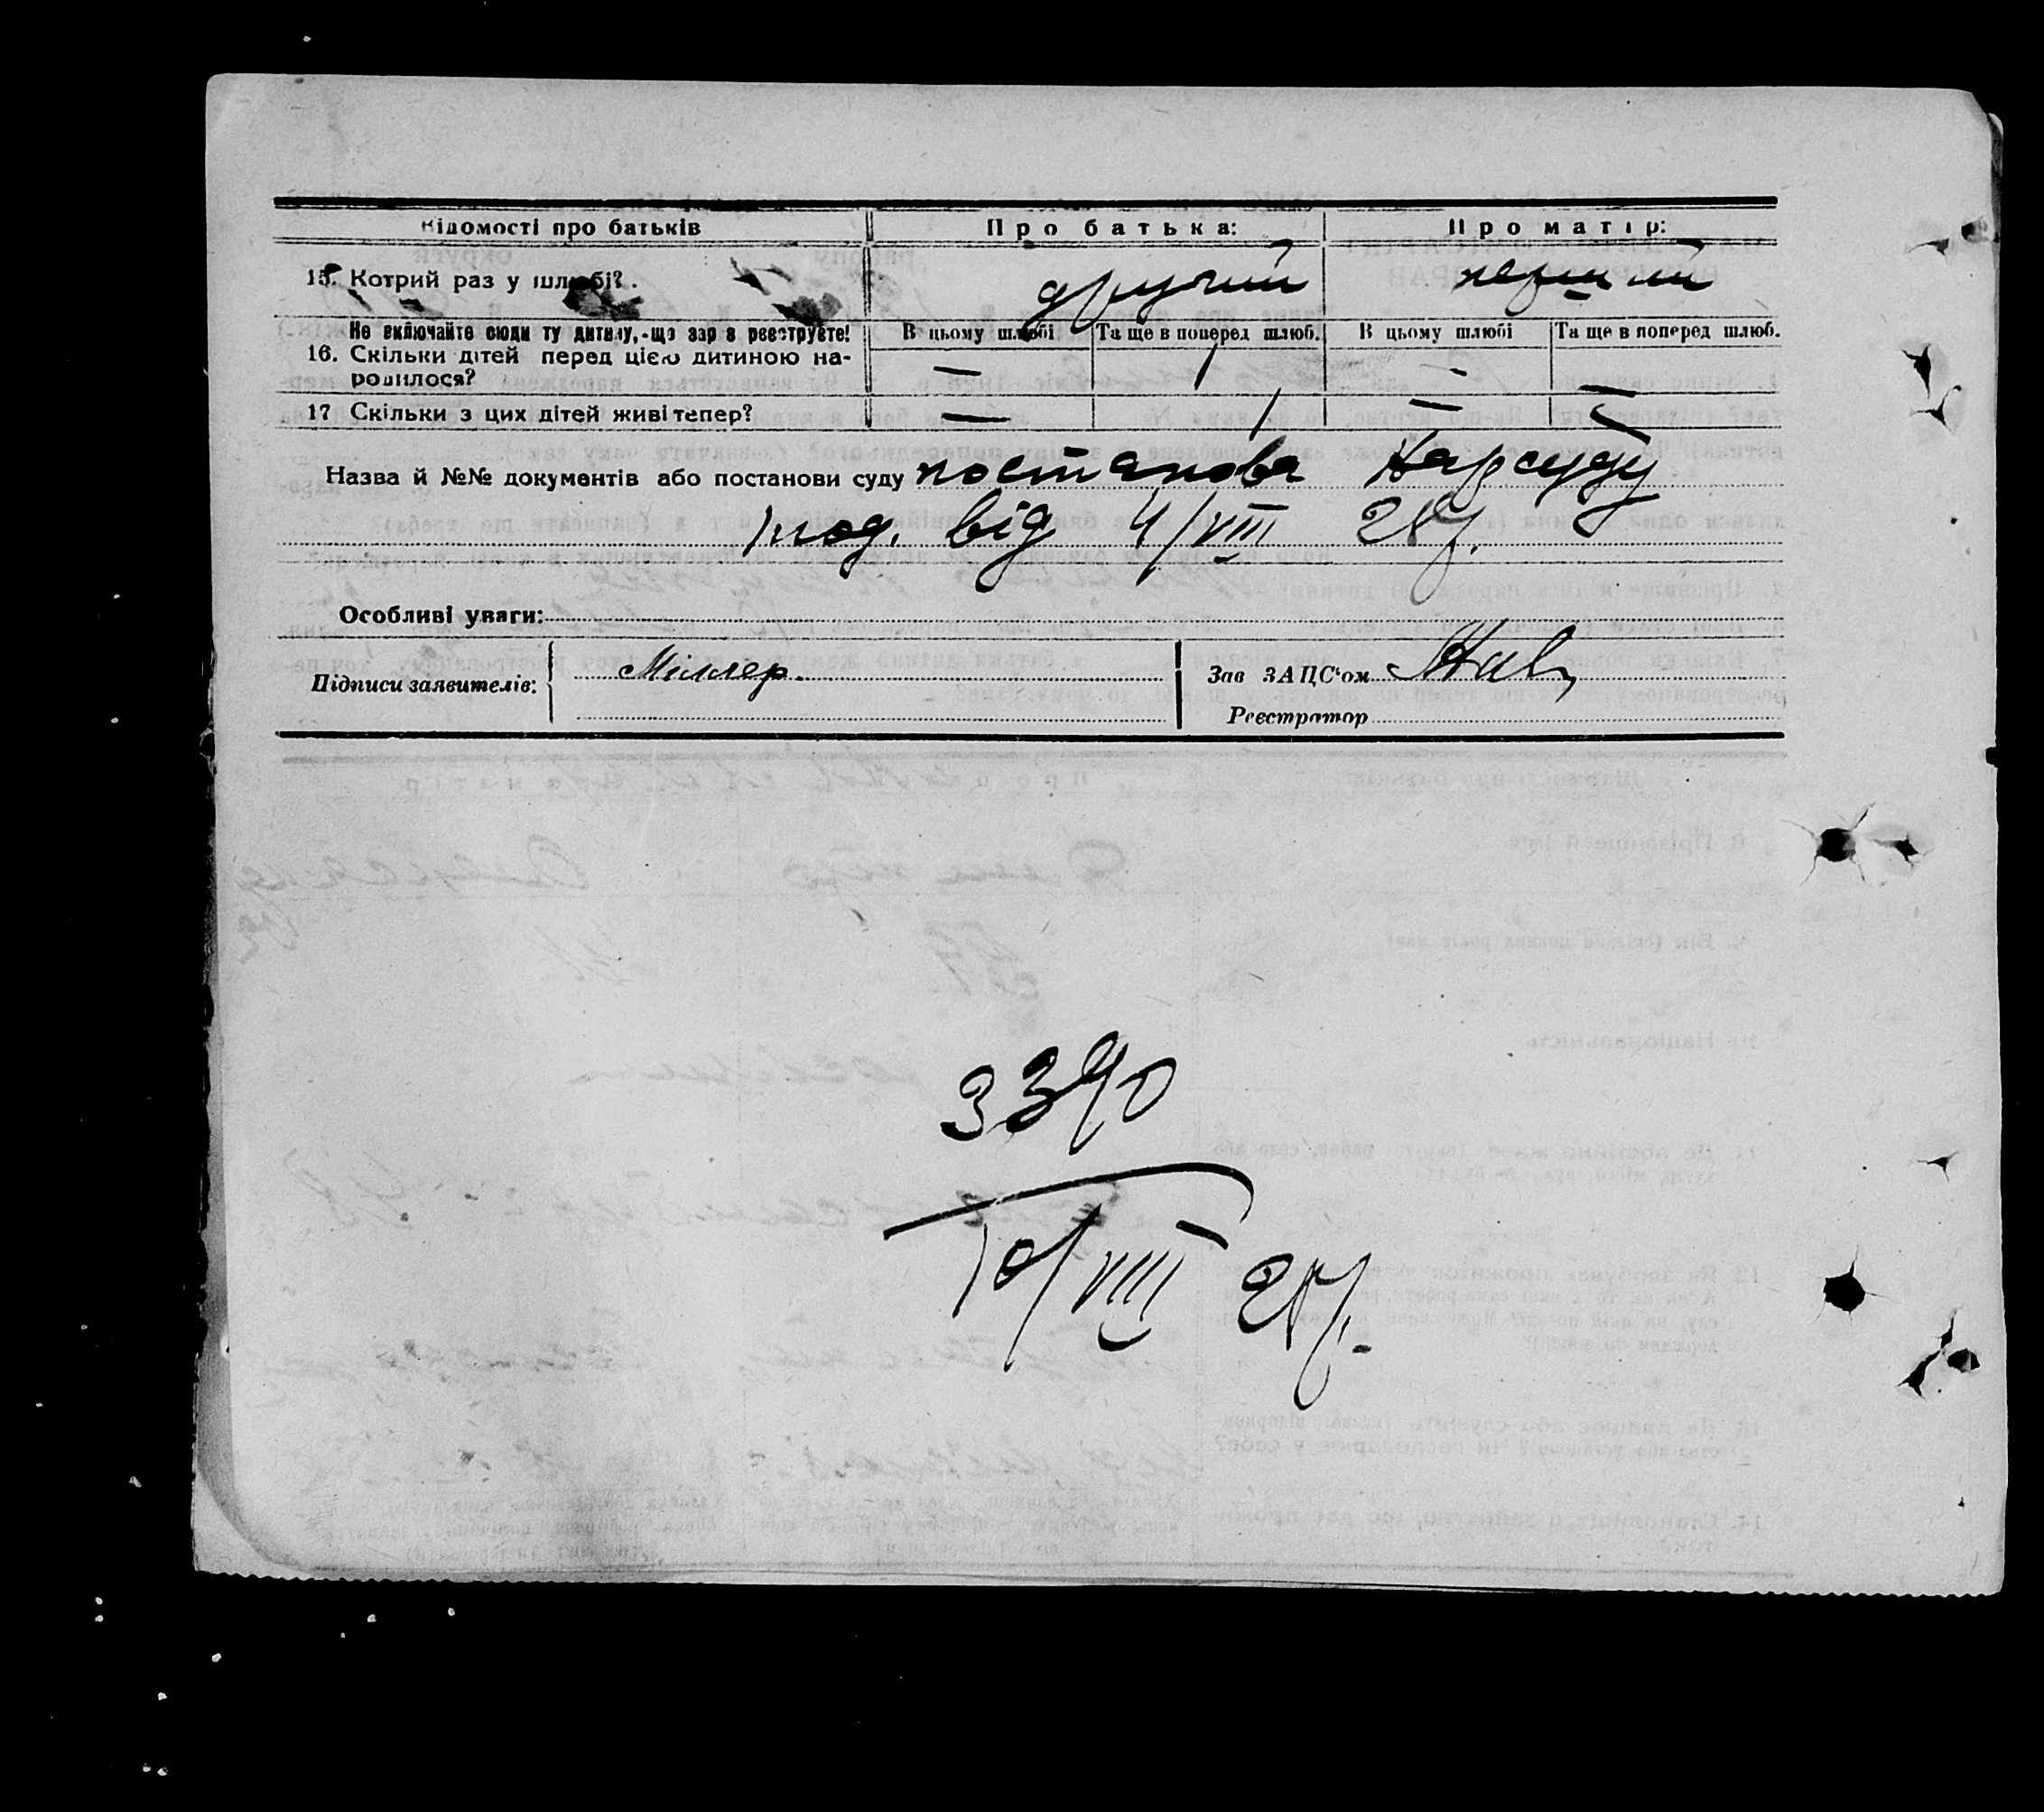 Відомості про батьків Про батька: Про матір:
15. Котрий раз у шлюбі? другий перший
Не включайте сюди ту дитину, що зараз реєструєте! В цьому шлюбі Та ще в поперед шлюб. В цьому шлюбі Та ще в поперед шлюб.
16. Скільки дітей перед цією дитиною на-
родилося? — 1 — —
17 Скільки з цих дітей живі тепер? — 1 — —
Назва й №№ документів або постанови суду постанова Нарсуду
від 4/VIII 28р.
Особливі уваги:
Підписи заявителів: Міллер Зав ЗАЦС'ом
Реєстратор
3390
10/VIII 28р.